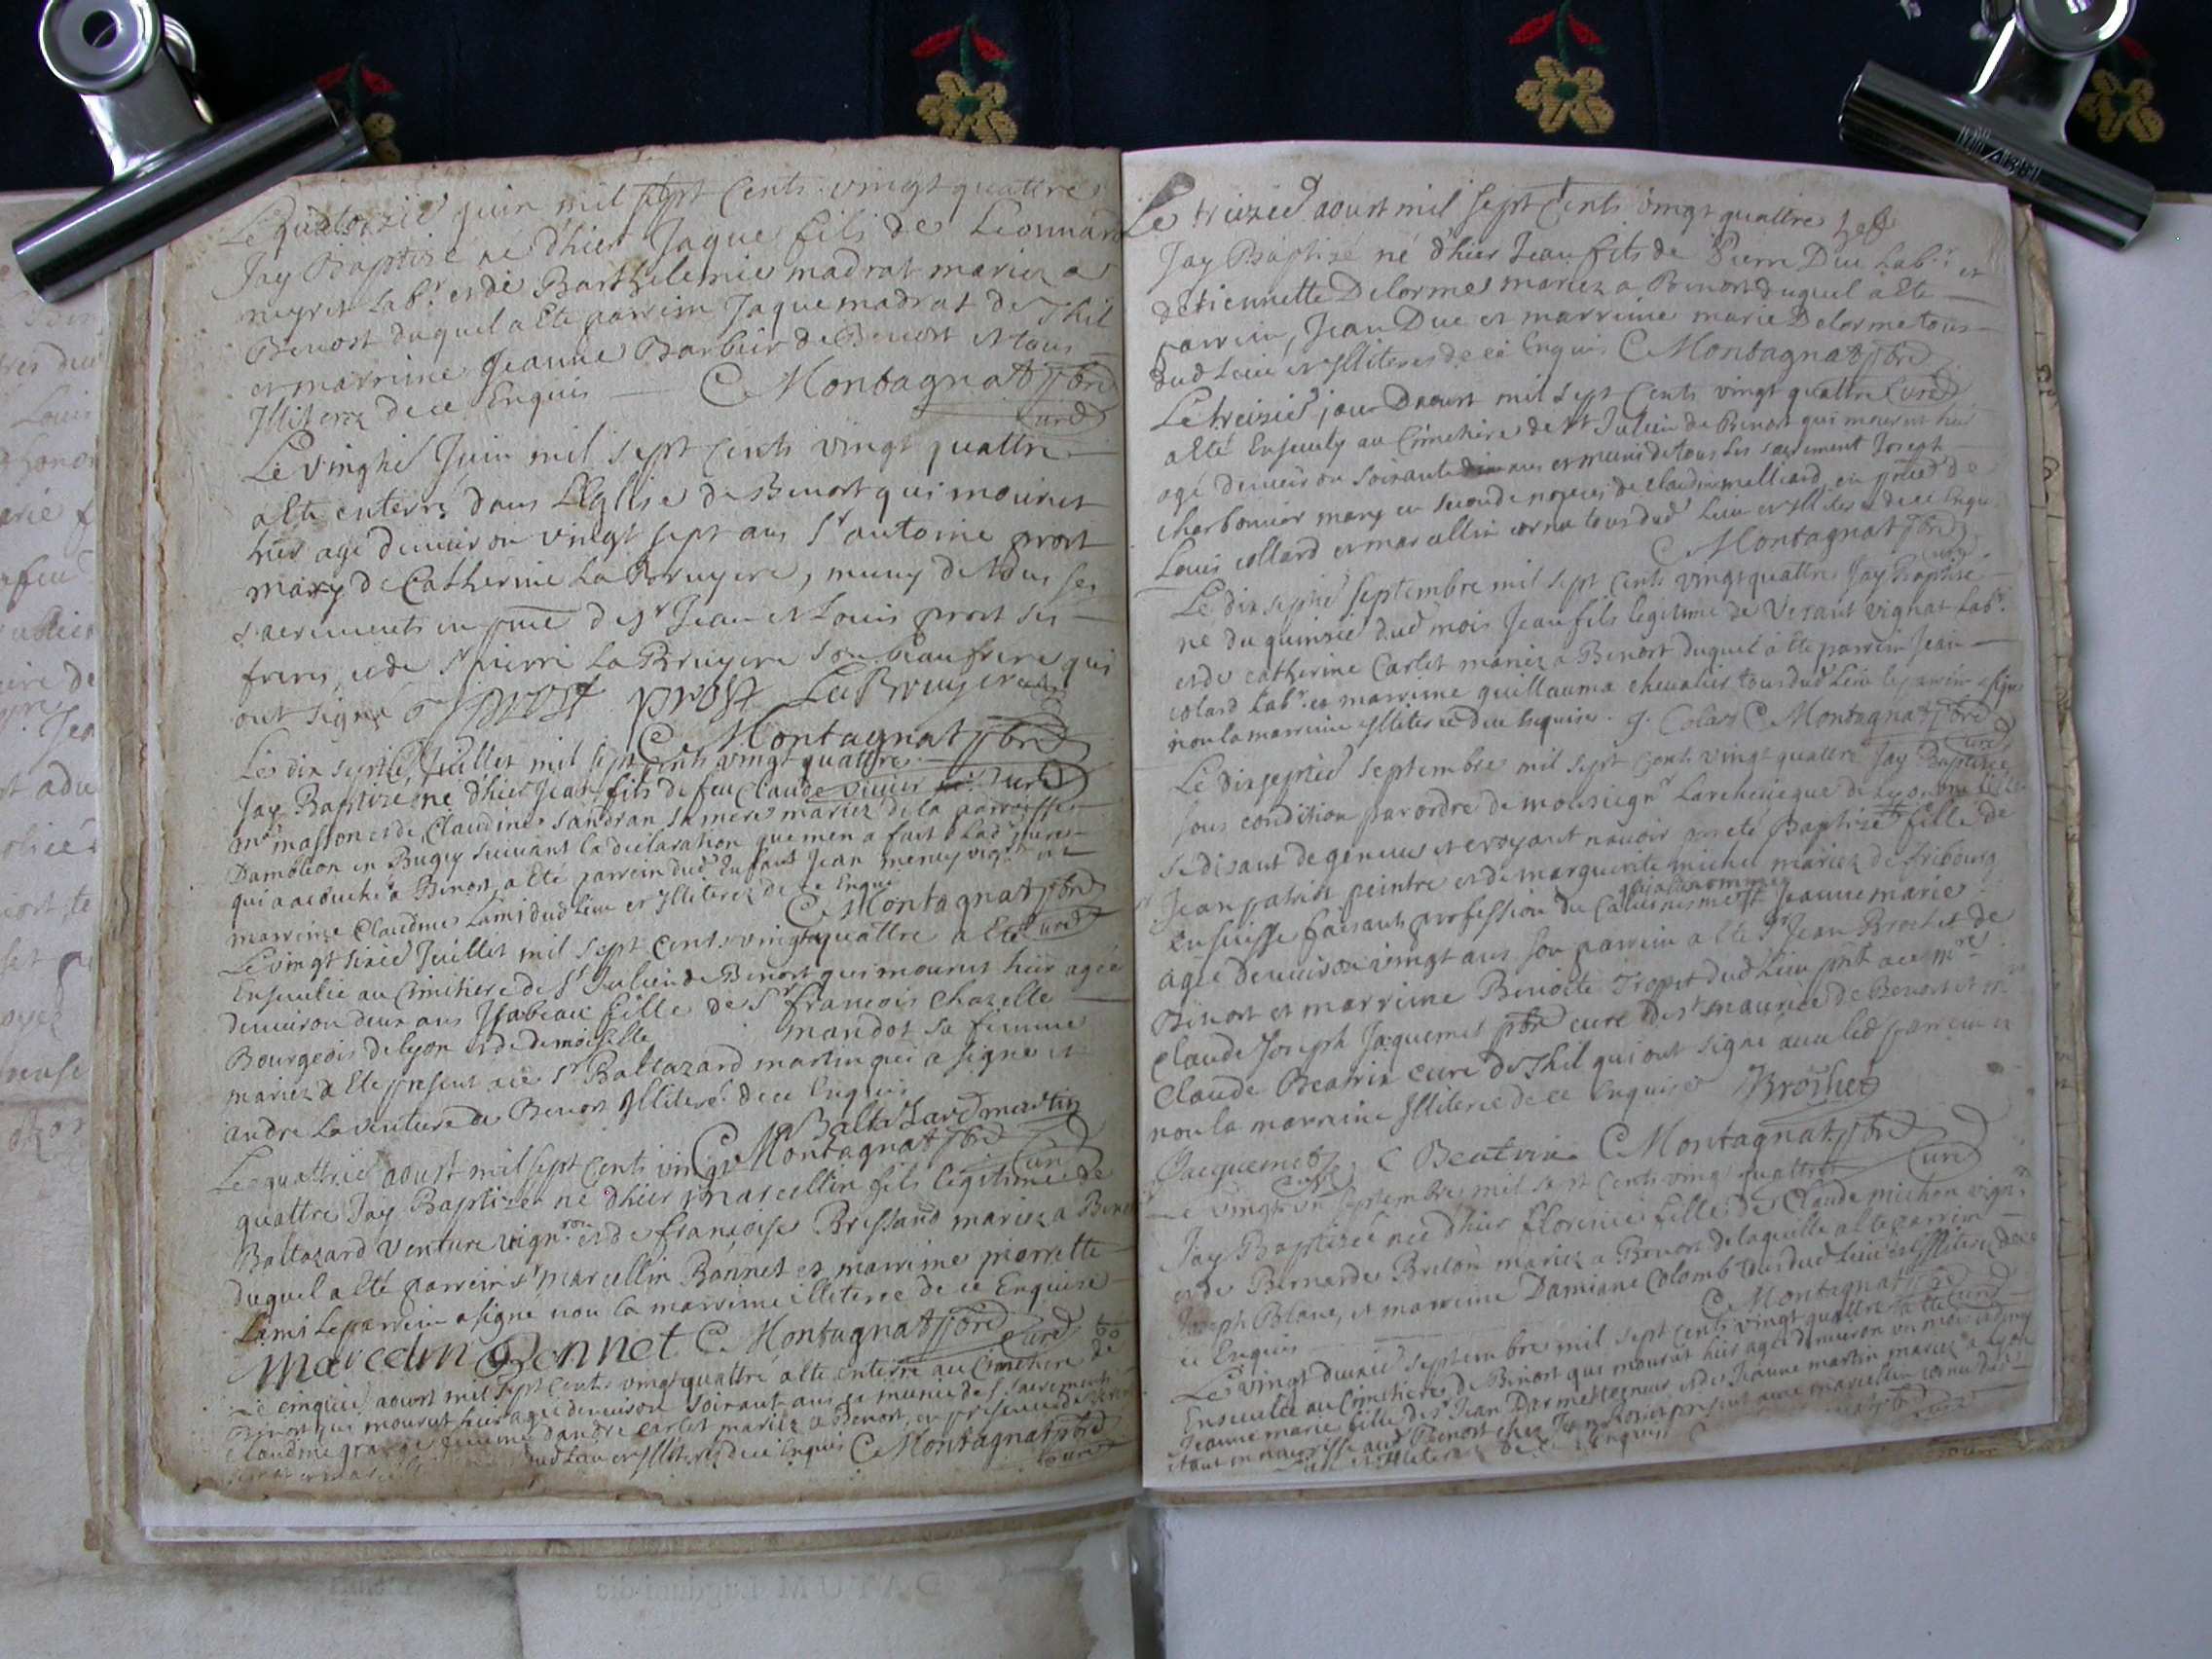 Le quatorzie juin mil sept cents vingt quattre
Jay Baptisé né d'hier Jaque fils de Leonnard
neyret Labr. et de Barthelemie madrat mariez a
Benost duquel a Eté parrein Jaque madrat de Thil
et marreine Jeanne Barbier de Benost et tous
Illiterez de ce Enquis C Montagnat pbre
curé
Le vingtie Juin mil sept cents vingt quattre
a Eté enterré dans L'Eglise de Benost qui mourut
hier agé denviron vingt sept ans Sr antoine prost
mary de Catherine La Bruyere, muny de tous ses
sacrements en pnce de Sr Jean et Louis prost ses
freres, et de Sr pierre La Bruyere son beau frere qui
ont signé prost prost La Bruyere
C Montagnat pbre
Le dix septie Juillet mil sept cents vingt quattre
curé
Jay Baptizé né d'hier Jean fils de feu Claude
mre masson et de Claudine sandran sa mere mariez de la parroisse
Dambleon en Bugey suivant la declaration que men a fait Lad mere
qui a acouché a Benost, a Eté parrein dud Enfant Jean
marreine Claudine Lami dud Lieu et Illiterez de ce Enquis
C Montagnat pbre
curé
Le vingt sixie Juillet mil sept cents vingt quattre a Eté
Ensevelie au Cimitiere de St Julien de Benost qui mourut hier agée
denviron deux ans Isabeau fille de Sr françois Chazelle
Bourgeois de lyon et de demoiselle mandot sa femme
mariez a Eté present a ce Sr Baltazard martin qui a signé et
andre Laventure de Benost Illiteré de ce Enquis
Baltazard martin
C Montagnat pbre
curé
Le quattrie aoust mil sept cents vingt
quattre Jay Baptizé né d'hier marcellin fils legitime de
Baltazard Venture vigneron et de françoise Brissand mariez a Benost
duquel a Eté parrein Sr marcellin Bonnet et marreine pierrette
Lami Le parrein a signé non la marreine illiteree de ce Enquise
marcelin Bonnet C Montagnat pbre
curé
Le cinquie aoust mil sept cents vingt quattre a Eté enterré au Cimetiere de
Benost qui mourut hier agée denviron soixante ans et munie des sacrements
Claudine grange femme dandré Carlet mariez a Benost, en presence de
dud Lieu et Illiterez de ce Enquis C Montagnat pbre
curé
Le treizie aoust mil sept cents vingt quattre
Jay Baptizé né d'hier Jean fils de Pierre Duc Labr. et
detiennette Delorme mariez a Benost duquel a Eté
parrein, Jean Duc et marreine marie Delorme tous
dud Lieu et Illiterez de ce Enquis C Montagnat pbre
curé
Le treizie jour Daoust mil sept cents vingt quattre
a Eté Ensevely au Cimetiere de St Julien de Benost qui mourut hier
agé denviron soixante ans et muni de tous les sacrement Joseph
charbonnier mary en seconde nopces de Claudine melliard, en pnce de
Louis collard et marcellin cornu tous dud Lieu et Illiterez de ce Enquis
C Montagnat pbre
curé
Le dix septie septembre mil sept cents vingt quattre Jay Baptisé
né du quinzie dud mois Jean fils legitime de Verant vignat Labr.
et de catherine Carlet mariez a Benost duquel a Eté parrein Jean
colard Labr. et marreine guillauma chevalier tous dud Lieu le parrein a signé
non la marreine Illiteree de ce Enquise. J. Colard C Montagnat pbre
curé
Le dix septie septembre mil sept cents vingt quattre Jay Baptisée
sous condition par ordre de monseignr Larcheveque de Lyon une fille
se disant de geneve et croyant navoir pas eté Baptizée fille de
Jean patrist peintre et de marguerite michel mariez de fribourg
En suisse faisant profession du Calvinisme
Jeanne marie
agée denviron vingt ans son parrein a Eté Sr Jean Brochet de
Benost et marreine Benoite Tropet dud Lieu pnt a ce mre
Claude Joseph Jaquemet pbre curé de St maurice de Benost et mre
Claude Beatrix curé de Thil qui ont signé avec led parrein et
non la marreine Illiteree de ce Enquise Brochet
Jacquemet C Beatrix C Montagnat pbre
curé curé
Le vingt un septembre mil sept cents vingt quattre
Jay Baptisée née d'hier florence fille de Claude michon vignr.
et de Bernarde Breton mariez a Benost de laquelle a Eté parrein
Joseph Blanc, et marreine Damiane Colomb tous dud Lieu et Illiterez de
ce Enquis C Montagnat pbre
curé
Le vingt deuxie septembre mil sept cents vingt quattre a Eté
Ensevelie au Cimetiere de Benost qui mourut hier agée denviron un mois
Jeanne marie fille de Sr Jean et de Jeanne martin mariez a Lyon
Etant en nourrisse aud Benost chez marcellin cornu dud
Lieu et Illiterez de ce Enquis